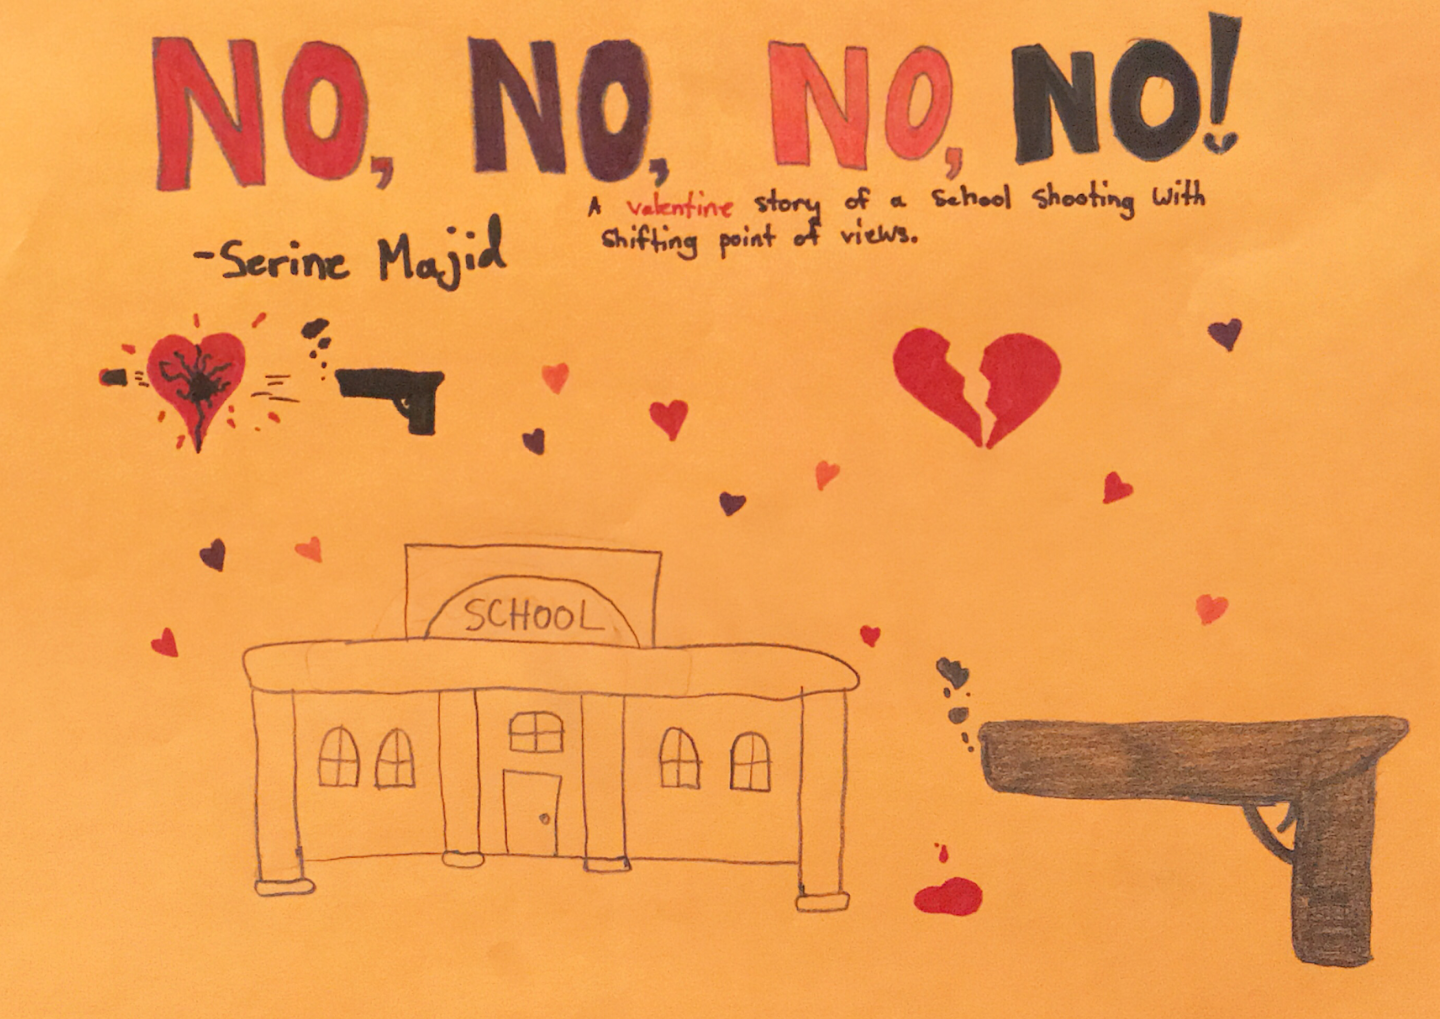 NO, NO, NO, NO!
A valentine story of a school shooting with
shifting point of views.
-Serine Majid
SCHOOL